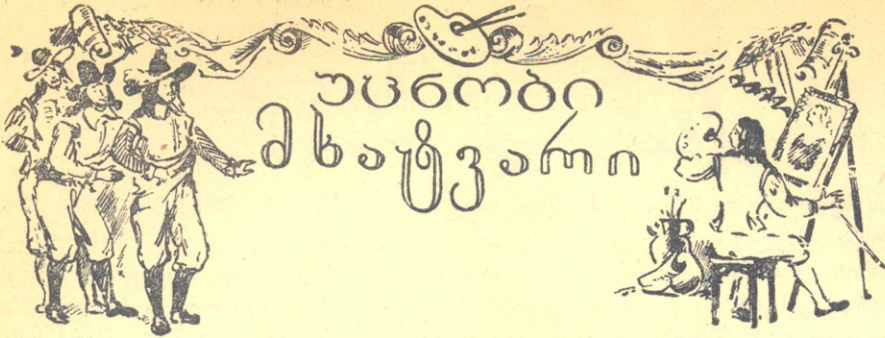 უცნობი
მხატვარი